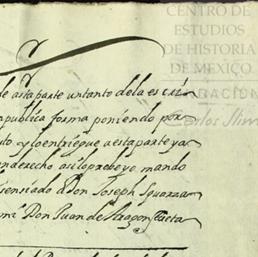 CENTRO DE
ESTUDIOS
DE HISTORIA
DE MÉXICO
Carlos Slim
de esta parte un tanto dela escri
publica forma poniendo por
uto y lo entriegue a esta parte ya
en derecho asilo probeyo mando
Lisensiado Don Joseph
Don Juan de Aragon